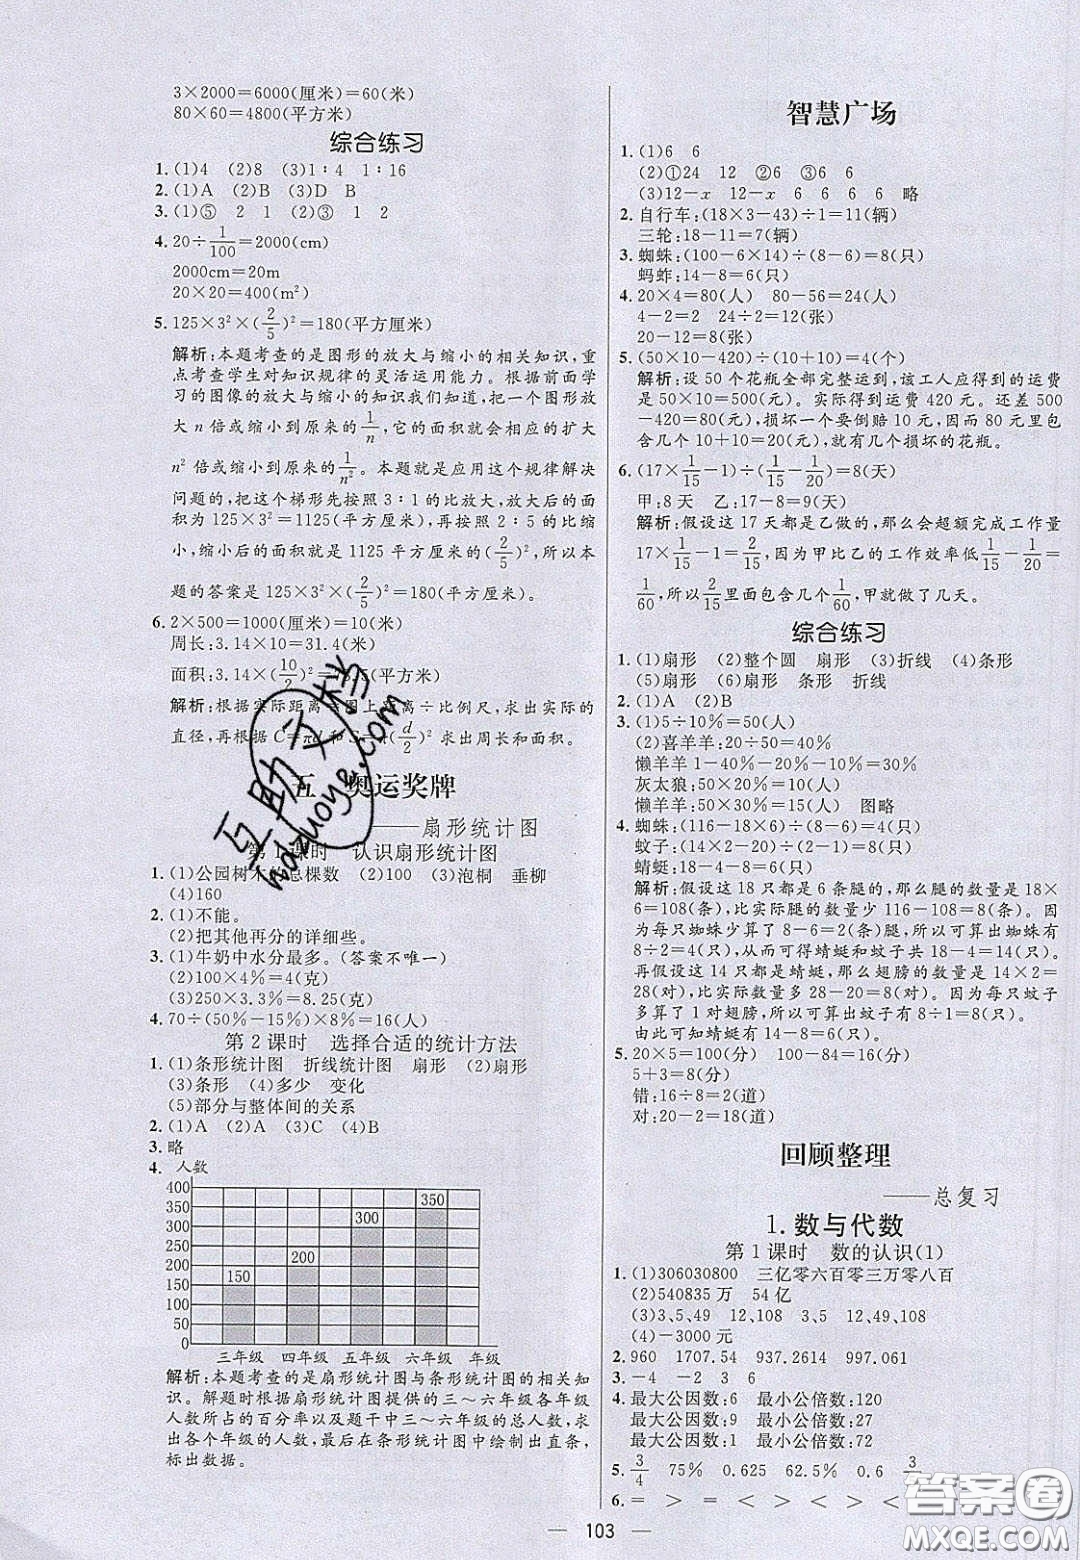 3×2000=6000(厘米)=60(米)
80×60=4800(平方米)
综合练习
1. (1)4 (2)8 (3)1∶4 1∶16
2. (1)A (2)B (3)D B
3. (1)⑤ 2 1 (2)③ 1 2
4. 20÷1/100=2000(cm)
2000cm=20m
20×20=400(m²)
5. 125×3²×(2/5)²=180(平方厘米)
解析:本题考查的是图形的放大与缩小的相关知识,重
点考查学生对知识规律的灵活运用能力。根据前面学
习的图像的放大与缩小的知识我们知道,把一个图形放
大 n 倍或缩小到原来的1/n,它的面积就会相应的扩大
n² 倍或缩小到原来的1/n²。本题就是应用这个规律解决
问题的,把这个梯形先按照 3∶1 的比放大,放大后的面
积为 125×3²=1125(平方厘米),再按照 2∶5 的比缩
小,缩小后的面积就是 1125 平方厘米的(2/5)²,所以本
题的答案是 125×3²×(2/5)²=180(平方厘米)。
6. 2×500=1000(厘米)=10(米)
周长:3.14×10=31.4(米)
面积:3.14×(10/2)²= 5(平方米)
解析:根据实际距离 图上距离÷比例尺,求出实际的
直径,再根据 C=πd 和 (d/2)² 求出周长和面积。
五 奥运奖牌
——扇形统计图
第1课时 认识扇形统计图
1. (1)公园树木的总棵数 (2)100 (3)泡桐 垂柳
(4)160
2. (1)不能。
(2)把其他再分的详细些。
3. (1)牛奶中水分最多。(答案不唯一)
(2)100×4%=4(克)
(3)250×3.3%=8.25(克)
4. 70÷(50%-15%)×8%=16(人)
第2课时 选择合适的统计方法
1. (1)条形统计图 折线统计图 扇形 (2)扇形
(3)条形 (4)多少 变化
(5)部分与整体间的关系
2. (1)A (2)A (3)C (4)B
3. 略
4. 人数
400
350
300
250
200
150
100
50
0
150
200
300
350
三年级 四年级 五年级 六年级 年级
解析:本题考查的是扇形统计图与条形统计图的相关知
识。解题时根据扇形统计图提供的三~六年级各年级
人数所占的百分率以及题干中三~六年级的总人数,求
出各个年级的人数,最后在条形统计图中绘制出直条,
标出数据。
智慧广场
1. (1)6 6
(2)①24 12 ②6 ③6 6
(3)12-x 12-x 6 6 6 6 略
2. 自行车:(18×3-43)÷1=11(辆)
三轮:18-11=7(辆)
3. 蜘蛛:(100-6×14)÷(8-6)=8(只)
蚂蚱:14-8=6(只)
4. 20×4=80(人) 80-56=24(人)
4-2=2 24÷2=12(张)
20-12=8(张)
5. (50×10-420)÷(10+10)=4(个)
解析:设 50 个花瓶全部完整运到,该工人应得的运费
是 50×10=500(元)。实际得到运费 420 元。还差 500
-420=80(元),损坏一个要倒赔 10 元,因而 80 元里
包含几个 10+10=20(元),就有几个损坏的花瓶。
6. (17×1/15-1)÷(1/15-1/20)=8(天)
甲:8 天 乙:17-8=9(天)
解析:假设这 17 天都是乙做的,那么会超额完成工作量
17×1/15-1=2/15,因为甲比乙的工作效率低1/15-1/20=
1/60,所以2/15里面包含几个1/60,甲就做了几天。
综合练习
1. (1)扇形 (2)整个圆 扇形 (3)折线 (4)条形
(5)扇形 (6)扇形 条形 折线
2. (1)A (2)B
3. (1)5÷10%=50(人)
(2)喜羊羊:20÷50=40%
懒羊羊:1-40%-20%-10%=30%
灰太狼:50×20%=10(人)
懒羊羊:50×30%=15(人) 图略
4. 蜘蛛:(116-18×6)÷(8-6)=4(只)
蚊子:(14×2-20)÷(2-1)=8(只)
蜻蜓:18-4-8=6(只)
解析:假设这 18 只都是 6 条腿的,那么腿的数量是 18×
6=108(条),比实际腿的数量少 116-108=8(条)。因
为每只蜘蛛少算了 8-6=2(条)腿,所以可算出蜘蛛有
8÷2=4(只),从而可得蜻蜓和蚊子共 18-4=14(只)。
再假设这 14 只都是蜻蜓,那么翅膀的数量是 14×2=
28(对),比实际数量多 28-20=8(对)。因为每只蚊子
多算了 1 对翅膀,所以可算出蚊子有 8÷1=8(只)。
由此可知蜻蜓有 14-8=6(只)。
5. 20×5=100(分) 100-84=16(分)
5+3=8(分)
错:16÷8=2(道)
对:20-2=18(道)
回顾整理
——总复习
1. 数与代数
第1课时 数的认识(1)
1. (1)306030800 三亿零六百零三万零八百
(2)540835万 54亿
(3)3、5、49 12、108 3、5 12、49、108
(4)-3000 元
2. 960 1707.54 937.2614 997.061
3. -4 -2 3 6
4. 最大公因数:6 最小公倍数:120
最大公因数:9 最小公倍数:27
最大公因数:1 最小公倍数:72
5. 3/4 75% 0.625 62.5% 0.6
6. = > = < > < >
— 103 —
互助文档
hdzuoye.com
答案圈
MXQE.COM